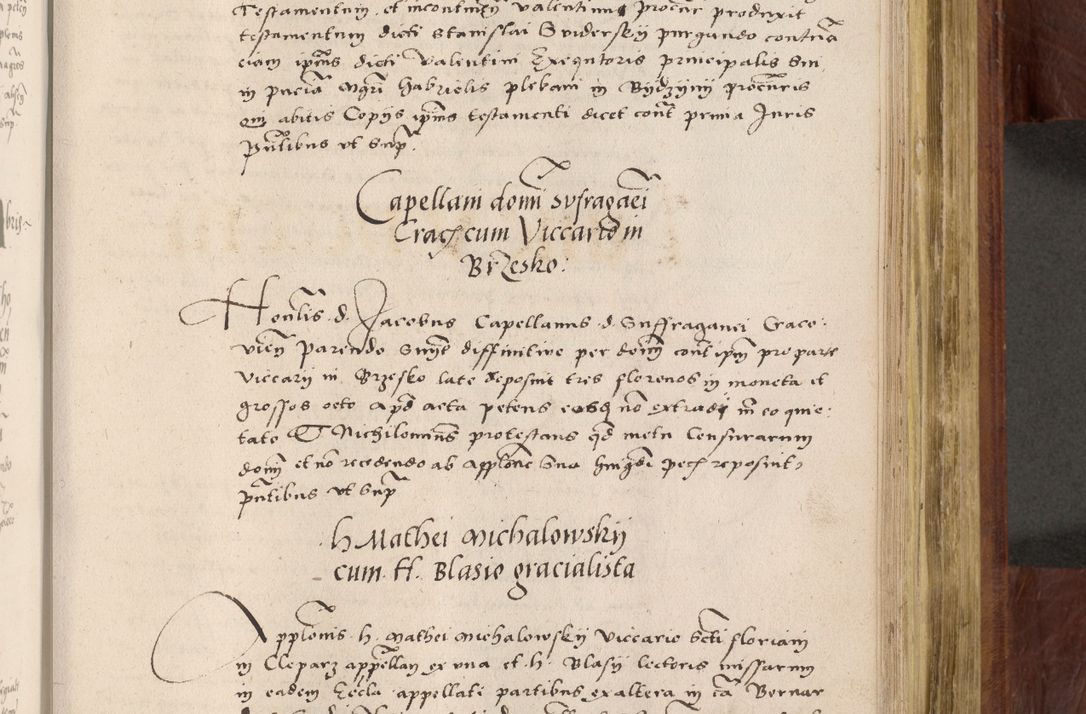 Testamentum et incontinenti Valentinus procur produxit
testamentum dicti Stanislai Suidersky purgando contuma
ciam ipius dicti Valentini Exequtoris principalis sui
in pncia mgri Gabrielis plebani in Bydzyny procuris
qm abitis Copys ipius testamenti dicet cont prima Juris
pntibus vt supr.
Capellani domi sufraganei
Crac cum Viccario in
Brzesko:
Honlis d. Jacobus Capellanus d. Suffraganei Craco:
vien Parendo snye diffinitiue per dom cont ipm pro parte
viccarii in Brzesko late deposuit tres florenos in moneta et
grossos octo apd acta petens eosq no extradi in eo quie:
tato Nichilomins protestans qd metu Censurarum
dom et no recedendo ab applone sua hmoi pec reposuit
pntibus vt supr
h Mathei Michalowskij
cum H. Blasio gracialista
Applonis h. Mathei Michalowskij viccario Scti floriani
in Cleparz appellan ex vna et h. Blasij lectoris missarum
in eadem Eccla appellati partibus ex altera in ca Bernar